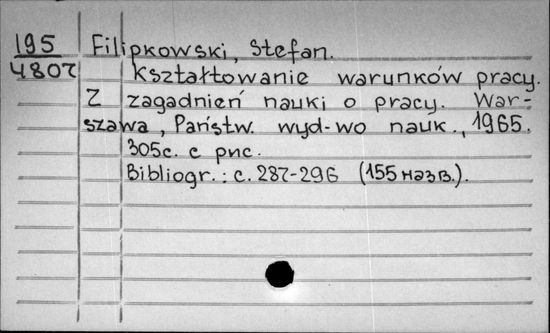 195 Filipkowski, Stefan.
4807 Kształtowanie warunków pracy.
Z zagadnień nauki o pracy. War-
szawa, Państw. wyd-wo nauk., 1965.
305с. с рис.
Bibliogr.: с. 287-296 (155 назв.).